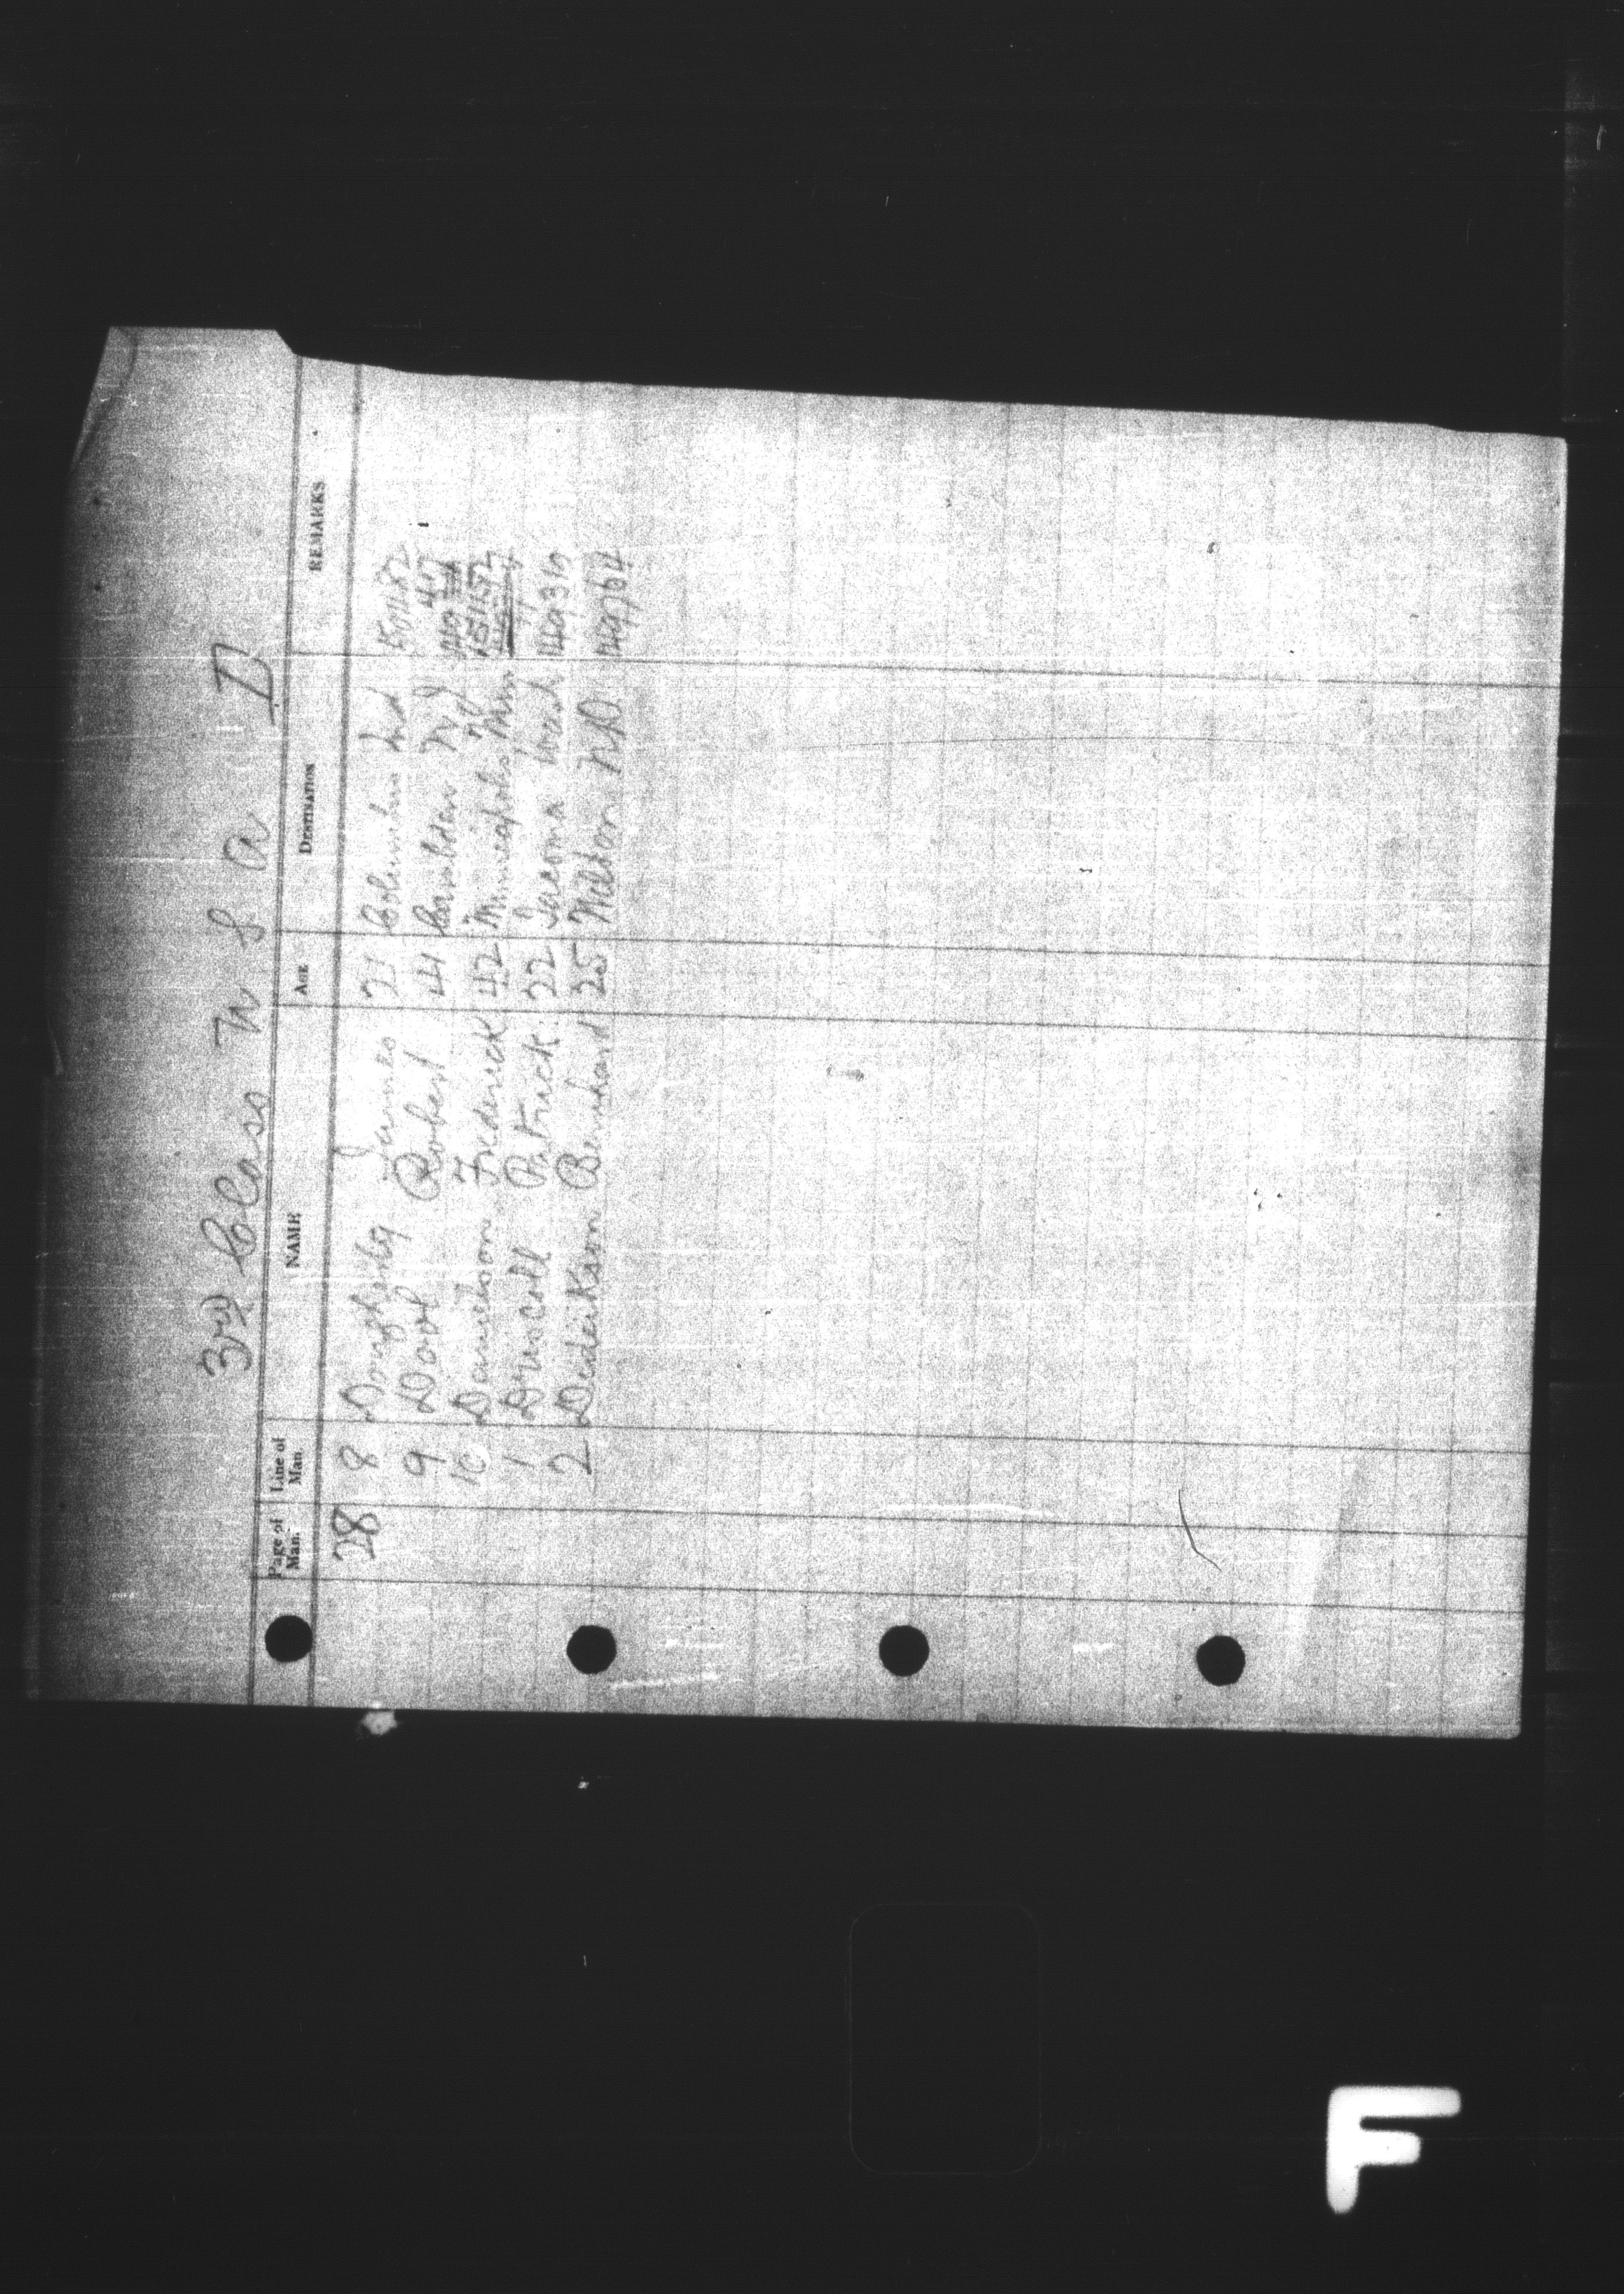 3rd Class U S A D
Page of Man. Line of Man NAME AGE DESTINATION REMARKS
28 8 Dougherty James 21 Columbus Ind
9 Dool Robert 44 N J
10 Danielson Frederick 42 Minneapolis Minn
1 Driscoll Patrick 22 Tacoma Wash
2 Diderikson Bernhard 25 Nelson N.D. 149764
F